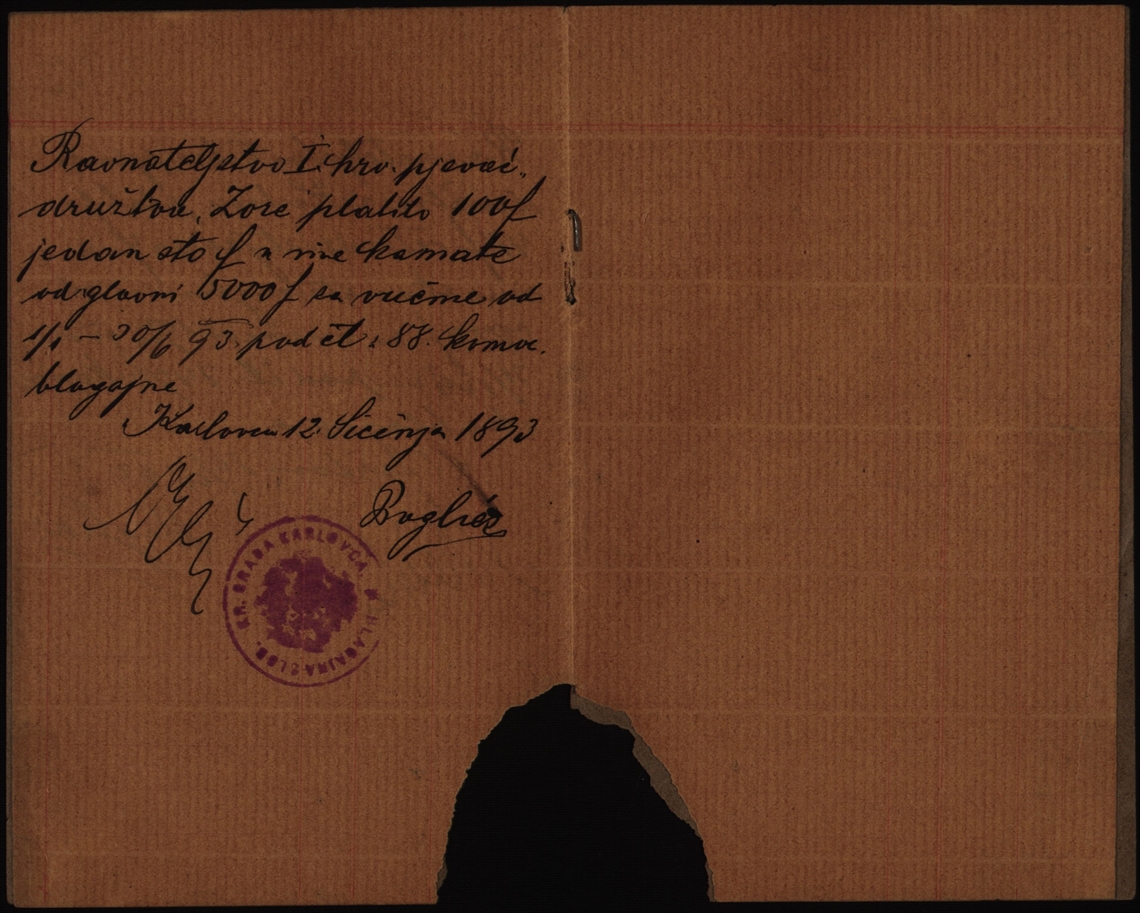 Ravnateljstvo I. hrv. pjevač.
družtva „Zore platilo 100f
jedan sto f u ime kamate
od glavni 5000f za vrieme od
1/1 – 30/6 93. pod čt : 88. komor.
blagajne
Karlovcu 12. Siečnja 1893
KR. GRADA KARLOVCA * BLAGAJNA SLOB.